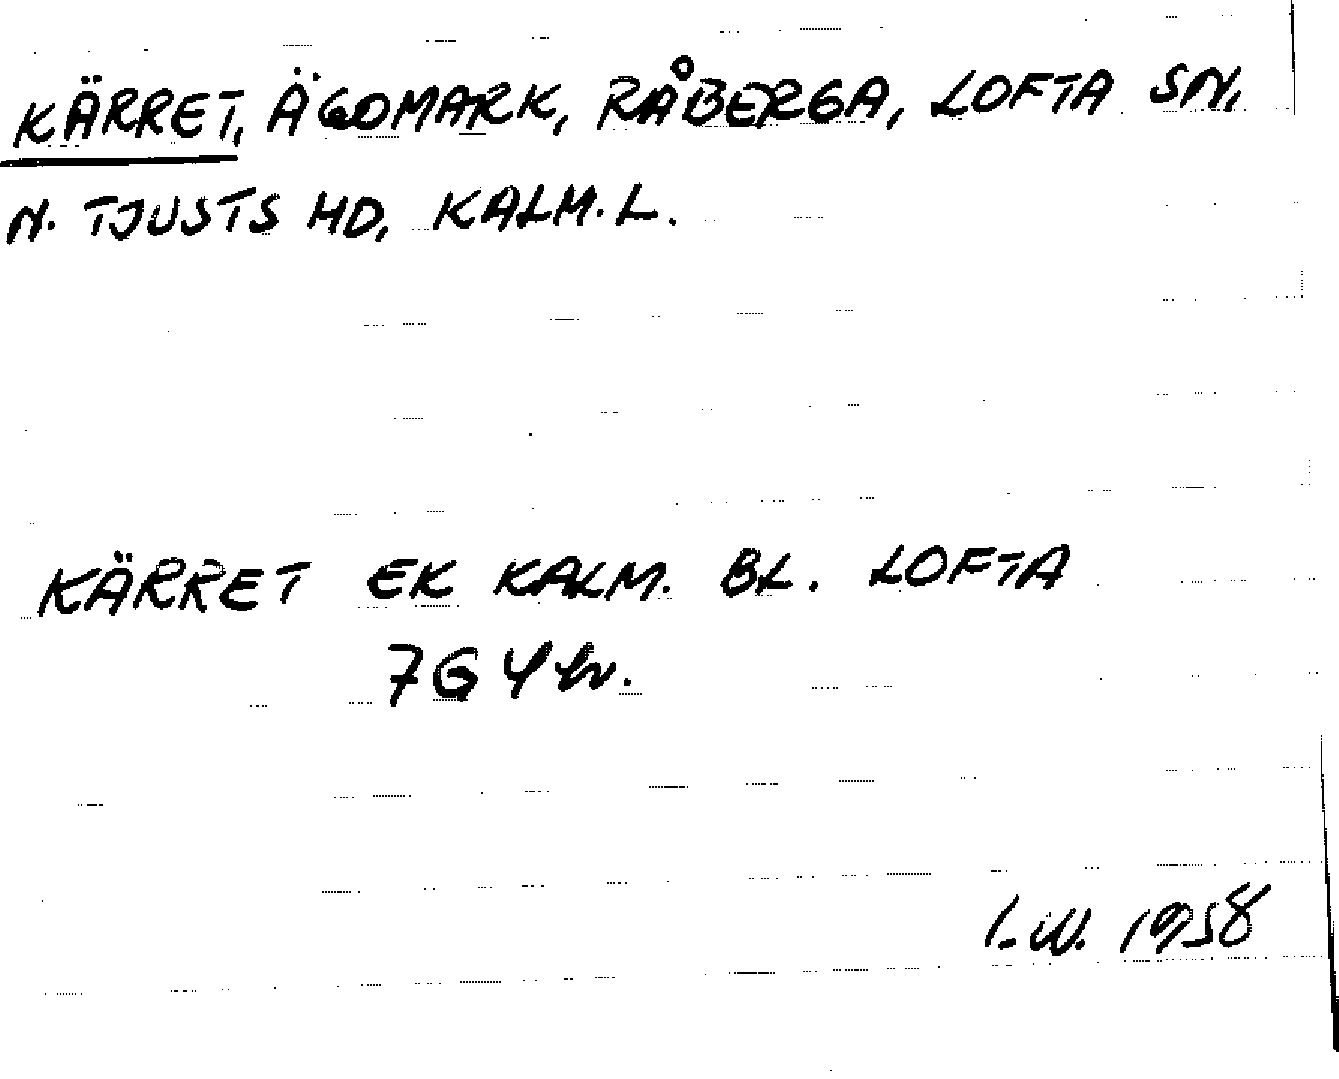 KÄRRET, ÄGOMARK, RÅBERGA, LOFTA SN,
N. TJUSTS HD, KALM. L.
KÄRRET EK KALM. BL. LOFTA
7G4
I.W. 1958